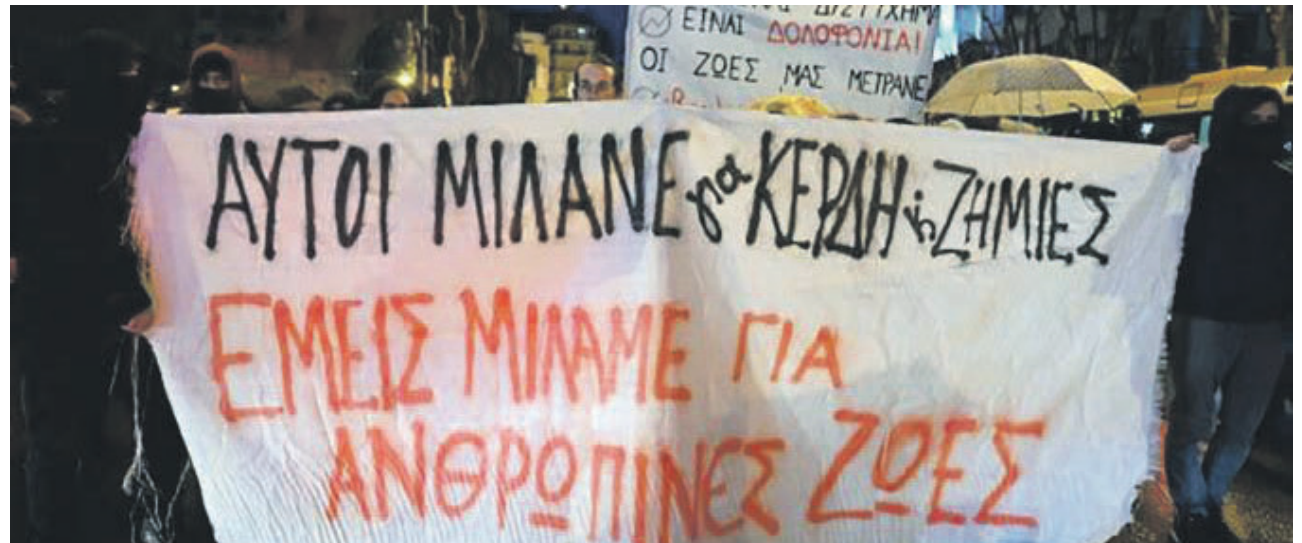 ΔΙΣΤΥΧΗΜΑ
ΕΙΝΑΙ ΔΟΛΟΦΟΝΙΑ!
ΟΙ ΖΩΕΣ ΜΑΣ ΜΕΤΡΑΝΕ
ΑΥΤΟΙ ΜΙΛΑΝΕ για ΚΕΡΔΗ ή ΖΗΜΙΕΣ
ΕΜΕΙΣ ΜΙΛΑΜΕ ΓΙΑ
ΑΝΘΡΩΠΙΝΕΣ ΖΩΕΣ